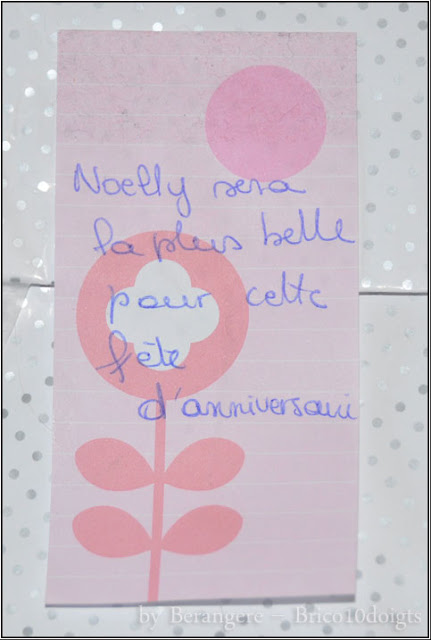 Noelly sera
la plus belle
pour cette
fête
d'anniversaire
by Berangere - Brico10doigts